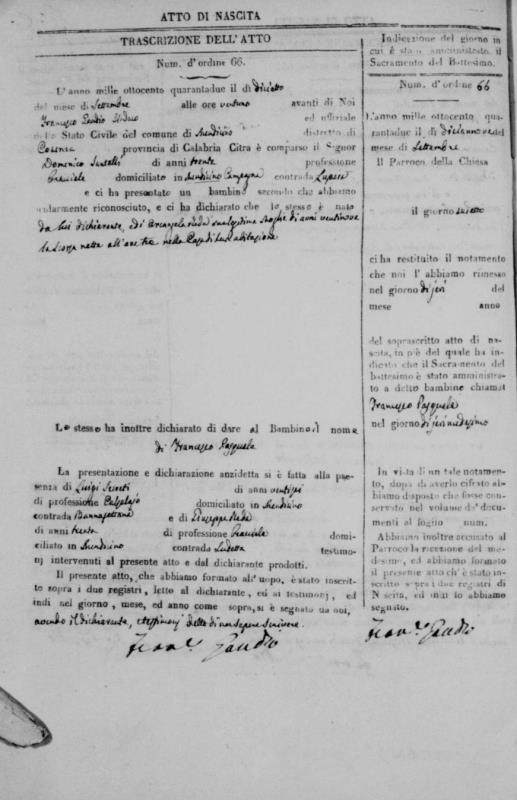 ATTO DI NASCITA
TRASCRIZIONE DELL'ATTO
Num. d'ordine 66.
L'anno mille ottocento quarantadue il dì diciotto
del mese di Settembre alle ore ventuno avanti di Noi
Francesco Gaudio Sindaco ed uffiziale
dello Stato Civile del comune di Mendicino distretto di
Cosenza provincia di Calabria Citra è comparso il Signor
Domenico di anni trenta professione
domiciliato in Mendicino Campagna contrada
e ci ha presentato un bambino secondo che abbiamo
ocularmente riconosciuto, e ci ha dichiarato che lo stesso è nato
da lui dichiarante, ed Arcangela sua legittima moglie di anni ventinove
alle ore tre nella Casa di loro abitazione
Lo stesso ha inoltre dichiarato di dare al Bambino il nome
di Francesco Pasquale
La presentazione e dichiarazione anzidetta si è fatta alla pre-
senza di Luigi di anni
di professione domiciliato in Mendicino
contrada e di Giuseppe
di anni trenta di professione domi-
ciliato in Mendicino contrada testimo-
nj intervenuti al presente atto e dal dichiarante prodotti.
Il presente atto, che abbiamo formato all'uopo, è stato inscrit-
to sopra i due registri, letto al dichiarante, ed ai testimonj, ed
indi nel giorno, mese, ed anno come sopra, si è segnato da noi,
avendo il dichiarante, e testimonj detto di non sapere scrivere.
Franc. Gaudio
Indicazione del giorno in
cui è stato amministrato il
Sacramento del Battesimo.
Num. d'ordine 66
L'anno mille ottocento qua-
rantadue il dì diciannove del
mese di Settembre
Il Parroco della Chiesa
il giorno
ci ha restituito il notamento
che noi l'abbiamo rimesso
nel giorno di jeri del
mese anno
del soprascritto atto di na-
scita, in piè del quale ha in-
dicato che il Sacramento del
battesimo è stato amministra-
to a detto bambino chiamat
Francesco Pasquale
nel giorno di jeri medesimo
In vista di un tale notamen-
to, dopo di averlo cifrato ab-
biamo disposto che fosse con-
servato nel volume de' docu-
menti al foglio num.
Abbiamo inoltre accusato al
Parroco la ricezione del me-
desimo, ed abbiamo formato
il presente atto ch'è stato in-
scritto sopra i due registri di
Nascita, ed indi lo abbiamo
segnato.
Franc. Gaudio